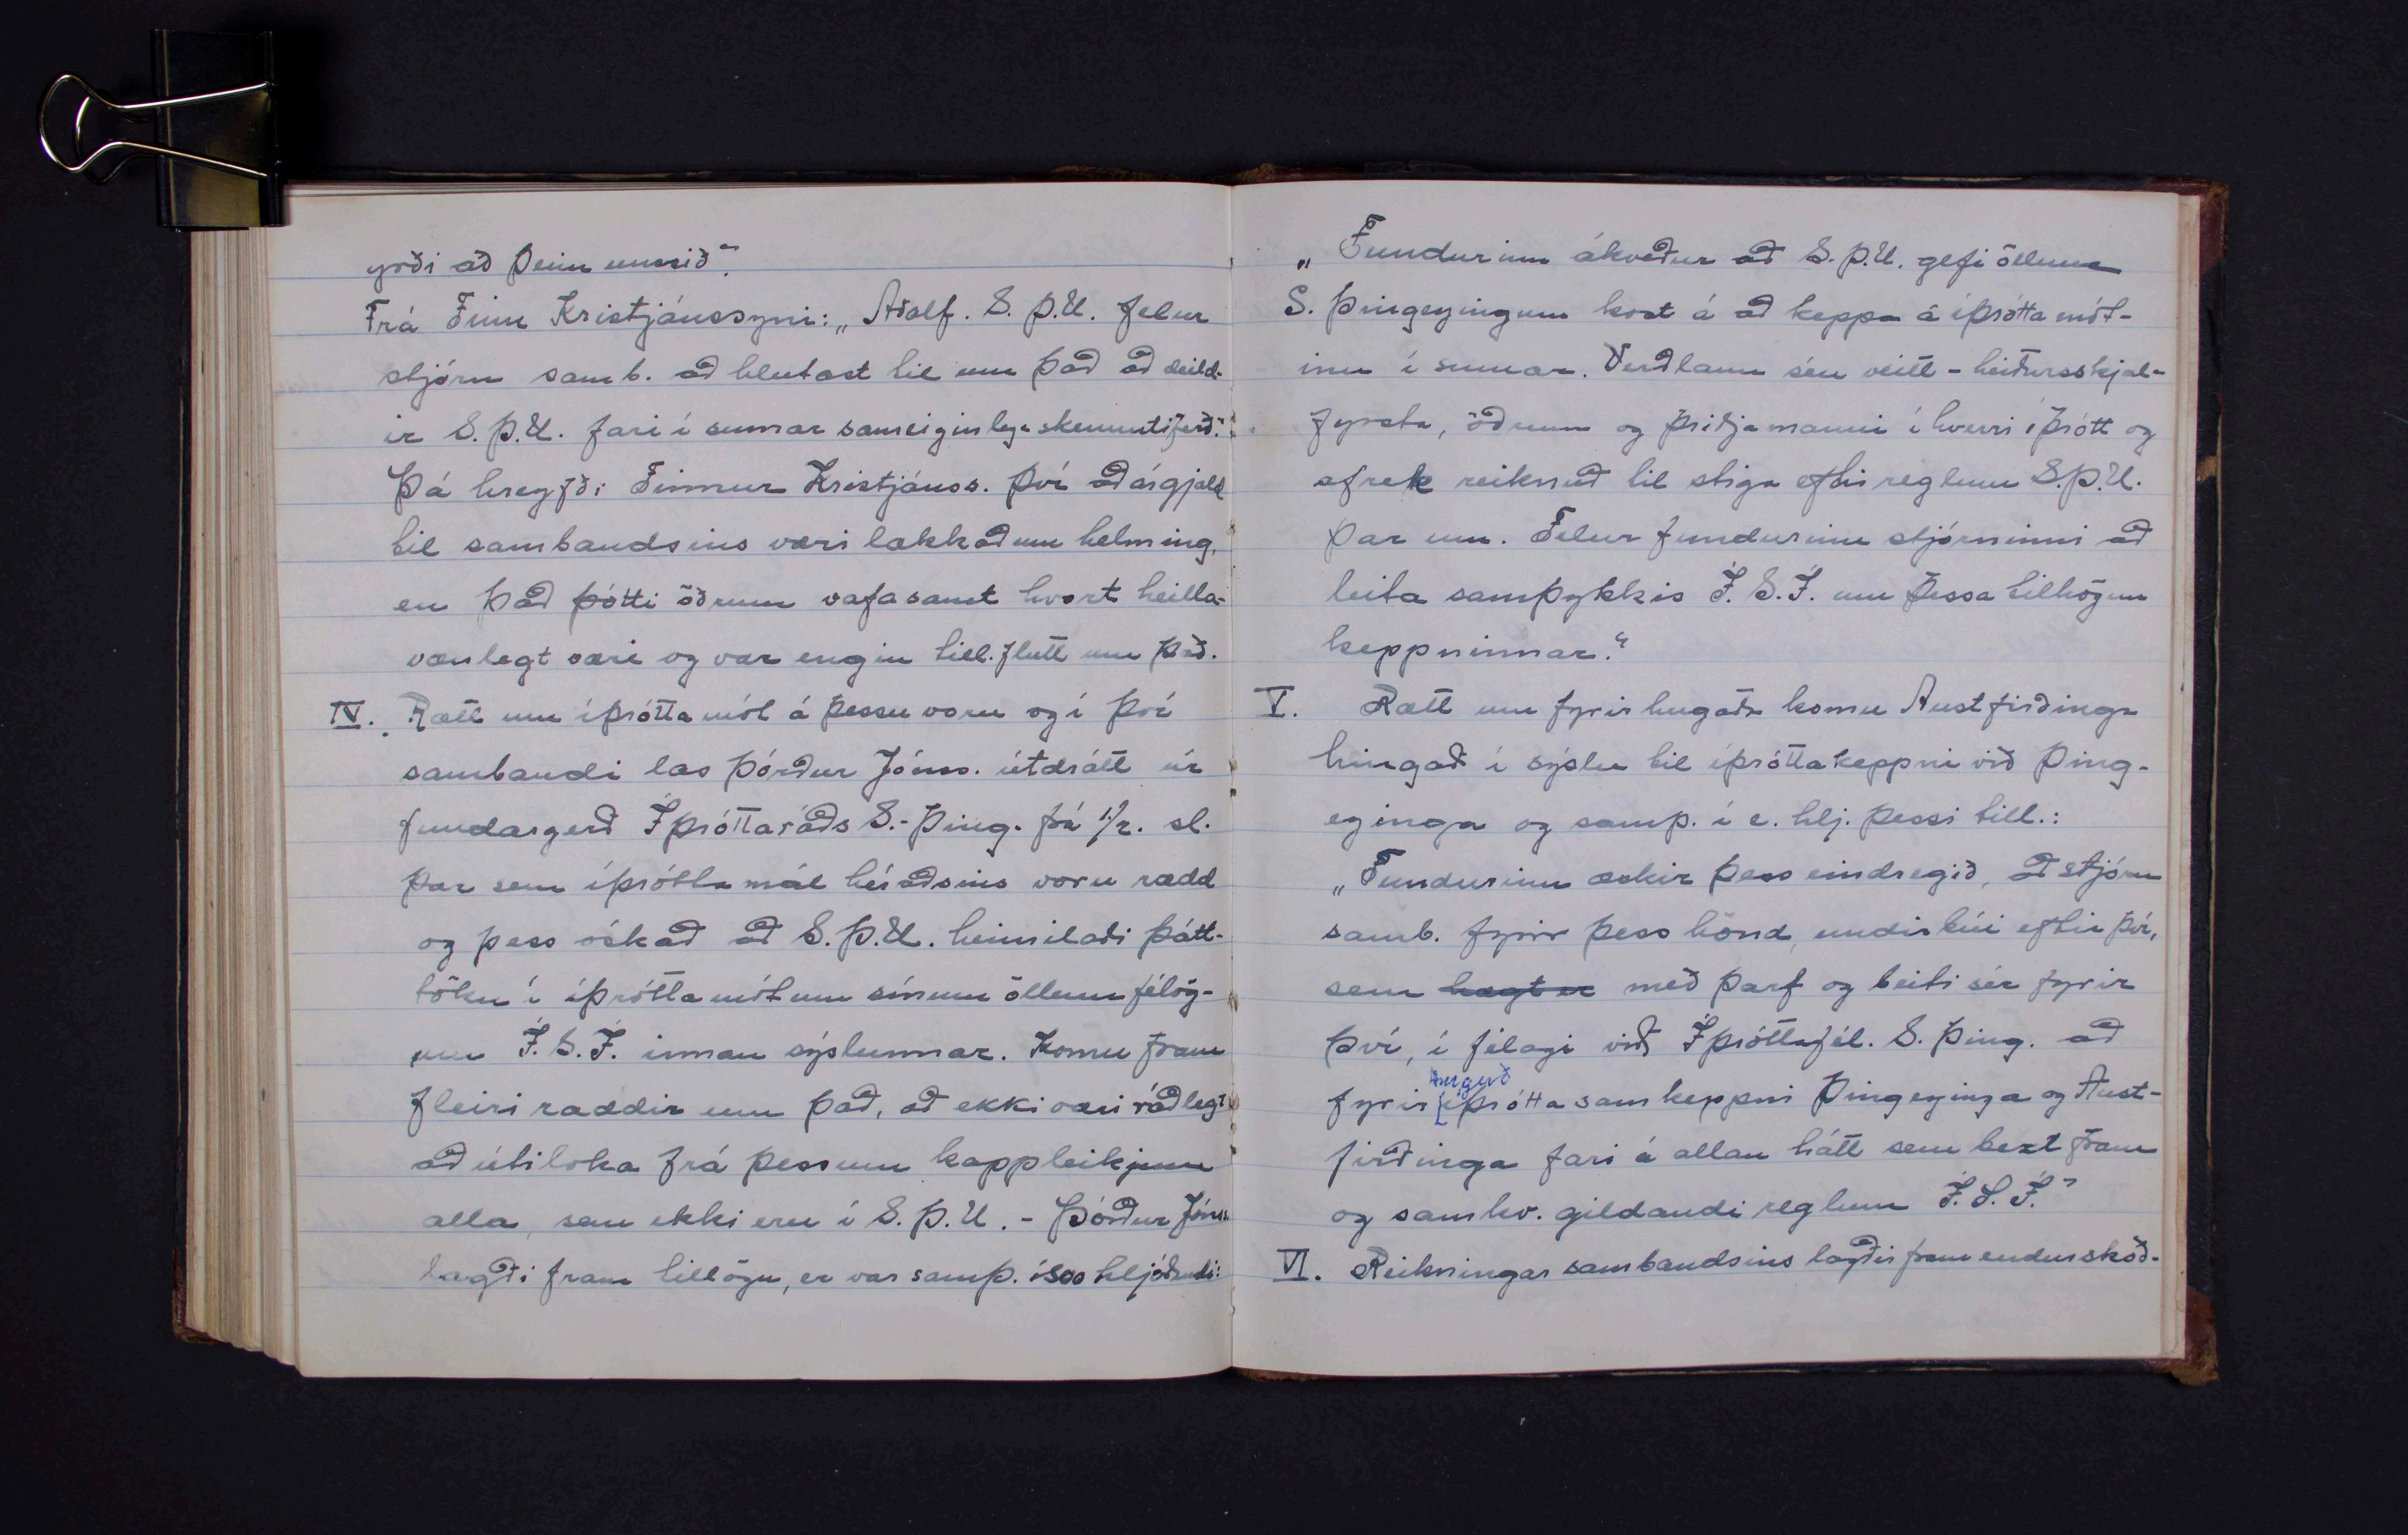 yrði að þeim unnið".
Frá Finn Kristjánssyni: „Aðalf. S.Þ.U. felur
stjórn samb. að hlutast til um það að deild-
ir S.Þ.U. fari í sumar sameiginlega skemmtiferð."
Þá hreyfði Finnur Kristjánss. því að árgjald
til sambandsins væri lækkað um helming,
en það þótti öðrum vafasamt hvort heilla-
vænlegt væri og var engin till. flutt um það.
IV. Rætt um íþróttamót á þessu voru og í því
sambandi las Þórður Jónss. útdrátt úr
fundargerð Íþróttaráðs S.-Þing. frá 1/2. sl.
þar sem íþróttamál héraðsins voru rædd
og þess óskað að S.Þ.U. heimilaði þátt-
töku í íþróttamótum sínum öllum félög-
um Í.S.Í. innan sýslunnar. Komu fram
fleiri raddir um það, að ekki væri ráðlegt
að útiloka frá þessum kappleikjum
alla, sem ekki eru í S.Þ.U. - Þórður Jónss.
lagði fram tillögu, er var samþ. í soo hljóðandi:
„Fundurinn ákveður að S.Þ.U. gefi öllum
S. Þingeyingum kost á að keppa á íþróttamót-
inu í sumar. Verðlaun séu veitt - heiðursskjal-
fyrsta, öðrum og þriðja manni í hverri íþrótt og
afrek reiknuð til stiga eftir reglum S.Þ.U.
þar um. Felur fundurinn stjórninni að
leita samþykkis Í.S.Í. um þessa tilhögun
keppninnar."
V. Rætt um fyrirhugaða komu Austfirðinga
hingað í sýslu til íþróttakeppni við Þing-
eyinga og samþ. í e. hlj. þessi till.:
„Fundurinn æskir þess eindregið, að stjórn
samb. fyrir þess hönd, undirbúi eftir því,
sem hægt er með þarf og beiti sér fyrir
því, í félagi við Íþróttafél. S. Þing. að
huguð
fyrir íþróttasamkeppni Þingeyinga og Aust-
firðinga fari á allan hátt sem bezt fram
og samkv. gildandi reglum Í.S.Í."
VI. Reikningar sambandsins lagðir fram endurskoð-